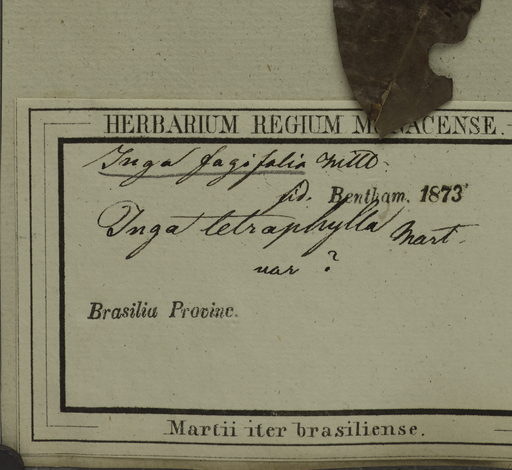 HERBARIUM REGIUM MONACENSE.
Inga fagifolia Willd.
fid. Bentham. 1873
Inga tetraphylla Mart.
var ?
Brasilia Provinc.
Martii iter brasiliense.